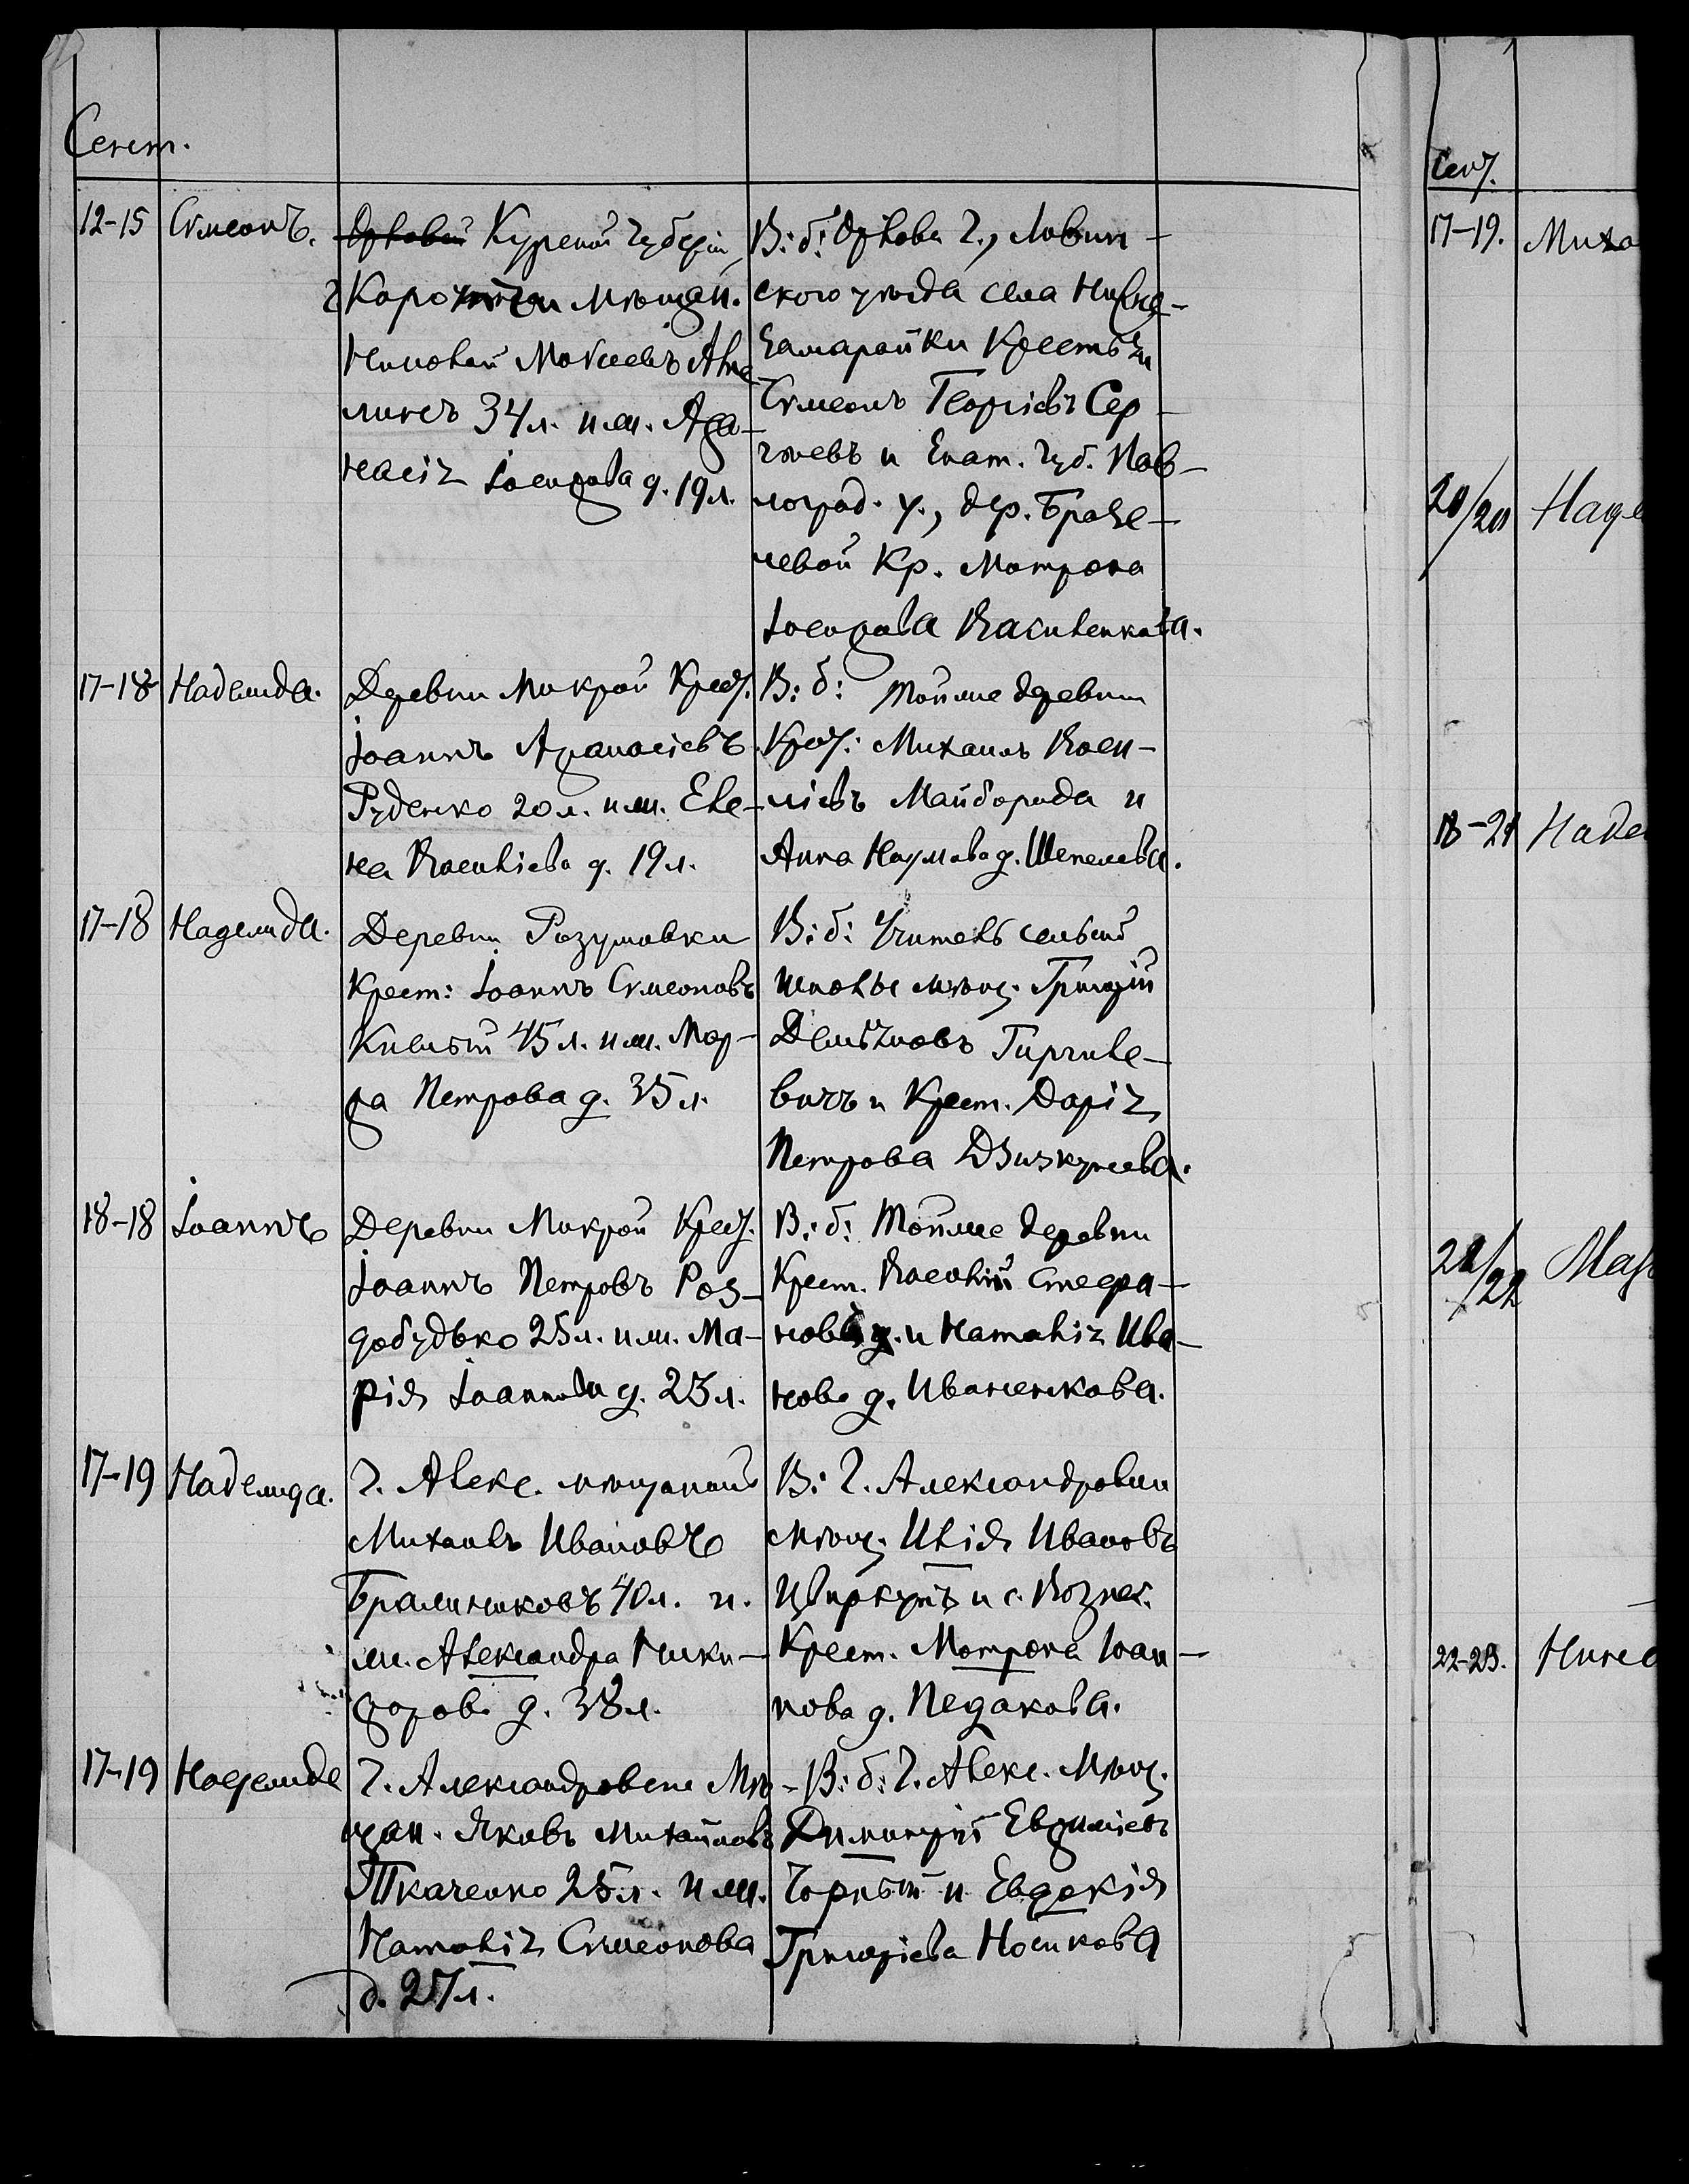 Сент.
12-15 Симеонъ.
Орловой Курской губерніи,
г. Корочи мѣщан.
Николай Моѵсеевъ
34 л. и ж. Ага-
 Іосифова д. 19 л.
В: б: Орлова г., Ливин-
ского уѣзда села Нижне-
 Крестьян.
Симеонъ Георгіевъ Сер-
гѣевъ и Екат. губ. Пав-
лоград. у., дер.
 Кр. Матрона
Іосифова Василенкова.
17-18 Надежда.
Деревни Мокрой Крест.
Іоаннъ Аѳанасіевъ
Руденко 20 л. и ж. Еле-
на Васильева д. 19 л.
В: б: Той же деревни
Крест: Михаилъ Васи-
ліевъ Майборода и
Анна Наумова д. Шепелева.
17-18 Надежда.
Деревни Разумовки
Крест: Іоаннъ Симеоновъ
 45 л. и ж. Мар-
ѳа Петрова д. 35 л.
В: б: Учитель сельской
школы мѣщ. Григорій
Демьяновъ
вичъ и Крест. Дарія
Петрова
18-18 Іоаннъ
Деревни Мокрой Крест.
Іоаннъ Петровъ Роз-
добудько 25 л. и ж. Ма-
рія Іоаннова д. 23 л.
В: б: Той же деревни
Крест. Василій Стефа-
новъ и Наталія Ива-
нова д. Иваненкова.
17-19 Надежда.
г. Алекс. мѣщанинъ
Михаилъ Ивановъ
Бражниковъ 40 л. и
ж. Александра Ники-
форова д. 38 л.
В: г. Александровки
Мѣщ. Илія Ивановъ
Цвиркунъ и с. Вознес.
Крест. Матрона Іоан-
нова д. Педакова.
17-19 Надежда
г. Александровска Мѣ-
щан. Яковъ Михайловъ
Ткаченко 25 л. и ж.
Наталія Симеонова
д. 27 л.
В: б: г. Алекс. Мѣщ.
Димитрій Евѳиміевъ
Чорный и Евдокія
Григоріева Носикова
Сент.
17-19. Миха
20/20 Наде
18-21 Наде
21/22 Мар
22-23.